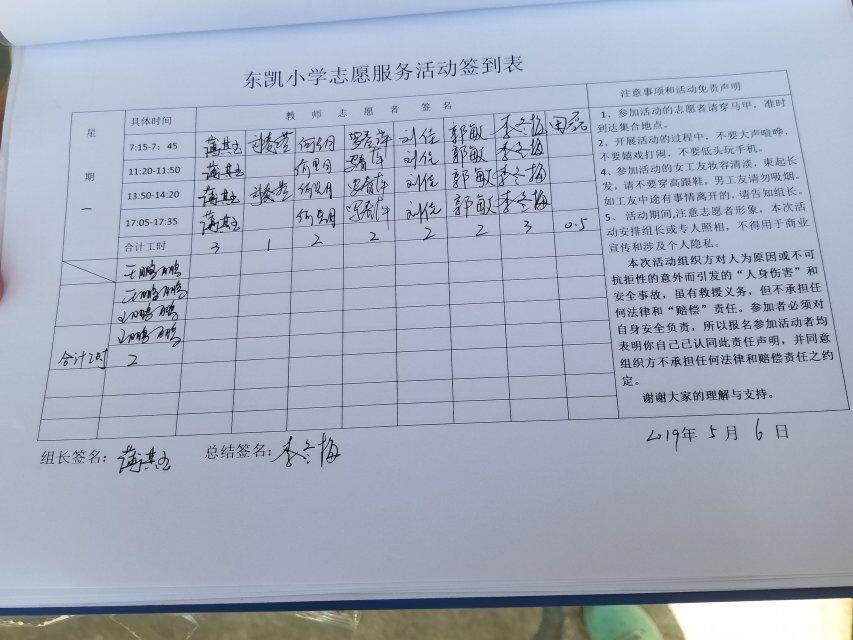 东凯小学志愿服务活动签到表
星期一 具体时间 教师志愿者签名 注意事项和活动免责声明
7:15-7:45 蒲其玉 罗春萍 刘佳 郭敏 李冬梅 田磊
11:20-11:50 蒲其玉 罗春萍 刘佳 郭敏 李冬梅
13:50-14:20 蒲其玉 罗春萍 刘佳 郭敏 李冬梅
17:05-17:35 蒲其玉 罗春萍 刘佳 郭敏 李冬梅
合计工时 3 1 2 2 2 2 3 0.5
王鹏鹏
王鹏鹏
王鹏鹏
王鹏鹏
合计工时 2
1、参加活动的志愿者请穿马甲，准时
到达集合地点。
2、开展活动的过程中，不要大声喧哗，
不要嬉戏打闹，不要低头玩手机。
4、参加活动的女工友妆容清淡，束起长
发，请不要穿高跟鞋，男工友请勿吸烟。
如工友中途有事情离开的，请告知组长。
5、活动期间,注意志愿者形象，本次活
动安排组长或专人照相，不得用于商业
宣传和涉及个人隐私。
本次活动组织方对人为原因或不可
抗拒性的意外而引发的“人身伤害”和
安全事故，虽有救援义务，但不承担任
何法律和“赔偿”责任。参加者必须对
自身安全负责，所以报名参加活动者均
表明你自己已认同此责任声明，并同意
组织方不承担任何法律和赔偿责任之约
定。
谢谢大家的理解与支持。
组长签名：蒲其玉 总结签名：李冬梅
2019年5月6日